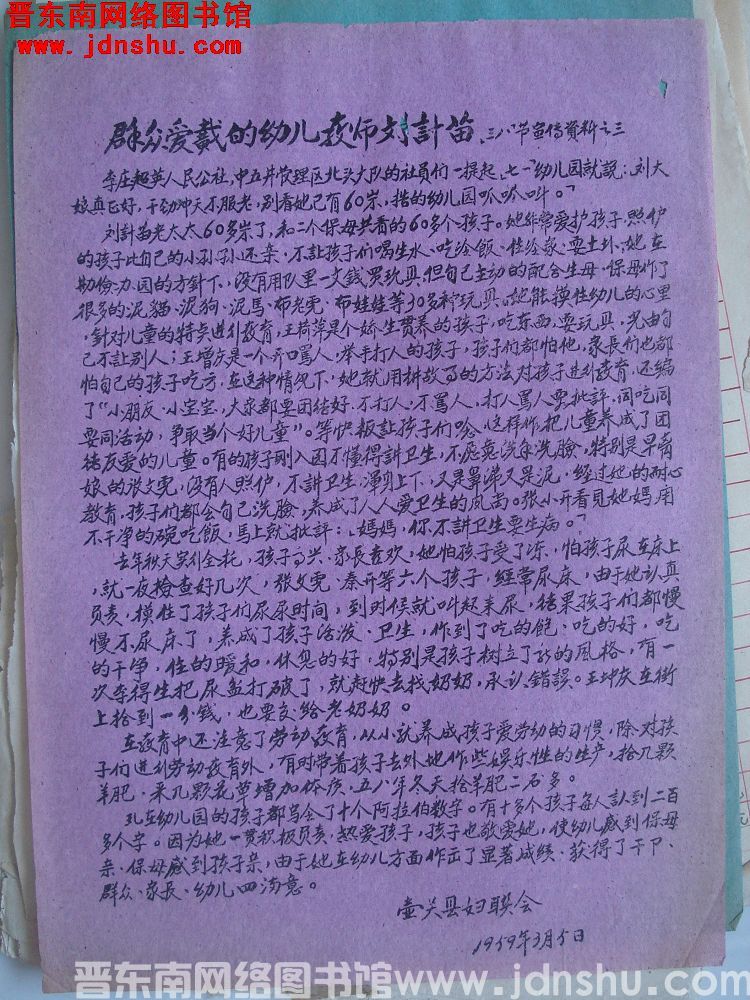 晋东南网络图书馆
www.jdnshu.com
群众爱戴的幼儿教师刘計笛 三八节宣传資料之三
李庄超英人民公社,中五井管理区北头大队的社員们一提起"七一"幼儿园就説:刘大
娘真正好,干劲冲天不服老,别看她已有60岁,搞的幼儿园呱呱叫。"
刘計笛老太太60多岁了,和二个保母共看的60多个孩子。她非常爱护孩子,照护
的孩子比自己的小孙孙还亲,不让孩子们喝生水、吃冷飯、住冷家、耍土坯、她在
勤俭办园的方針下,没有用队里一文錢买玩具,但自己主动的配合生母、保母作了
很多的泥貓、泥狗、泥馬、布老虎、布娃娃等30多种玩具。她能摸住幼儿的心里
,針对儿童的特点进行教育,王荷萍是个娇生貫养的孩子,吃东西、耍玩具,光由自
己不让别人;王增方是一个开口罵人,举手打人的孩子,孩子们都怕他,家長们也都
怕自己的孩子吃亏,在这种情况下,她就用耕教 的方法对孩子进行教育,还編
了"小朋友、小宝宝,大家都要团结好、不打人、不罵人、打人罵人要批評,同吃同
耍同活动,爭取当个好儿童"。等快板让孩子们唸,这样作,把儿童养成了团
结友爱的儿童。有的孩子刚入园不懂得讲卫生,不愿意洗手洗臉,特别是早离
娘的张文虎,没有人照护,不讲卫生,渾身上下,又是鼻涕又是泥,经过她的耐心
教育,孩子们都会自己洗臉,养成了人人爱卫生的風尚。张小开看見她媽用
不干净的碗吃飯,馬上就批評:"媽媽,你不讲卫生要生病。"
去年秋天实行全托,孩子高兴、家長喜欢,她怕孩子受了冻,怕孩子尿在床上
,就一夜检查好几次,张文虎、秦开等六个孩子,經常尿床,由于她认真
负责,摸住了孩子们尿尿时间,到时候就叫起来尿,结果孩子们都慢
慢不尿床了,养成了孩子活泼、卫生,作到了吃的飽、吃的好、吃
的干净,住的暖和,休息的好,特别是孩子树立了新的風格,有一
次李得生把尿盆打破了,就赶快去找奶奶,承认錯誤。王坤灰在街
上拾到一分錢,也要交给老奶奶。
在教育中还注意了劳动教育,从小就养成孩子爱劳动的习慣,除对孩
子们进行劳动教育外,有时带着孩子去外地作些娱乐性的生产,拾几颗
羊肥、采几颗花草增加体质,五八年冬天拾羊肥二石多。
現在幼儿园的孩子都写会了十个阿拉伯数字。有十多个孩子每人认到二百
多个字。因为她一贯积极负责,热爱孩子,孩子也敬爱她,使幼儿感到保母
亲、保母感到孩子亲,由于她在幼儿方面作出了显著成绩、获得了干卩、
群众、家長、幼儿四滿意。
壶关县妇联会
1959年3月5日
晋东南网络图书馆 www.jdnshu.com